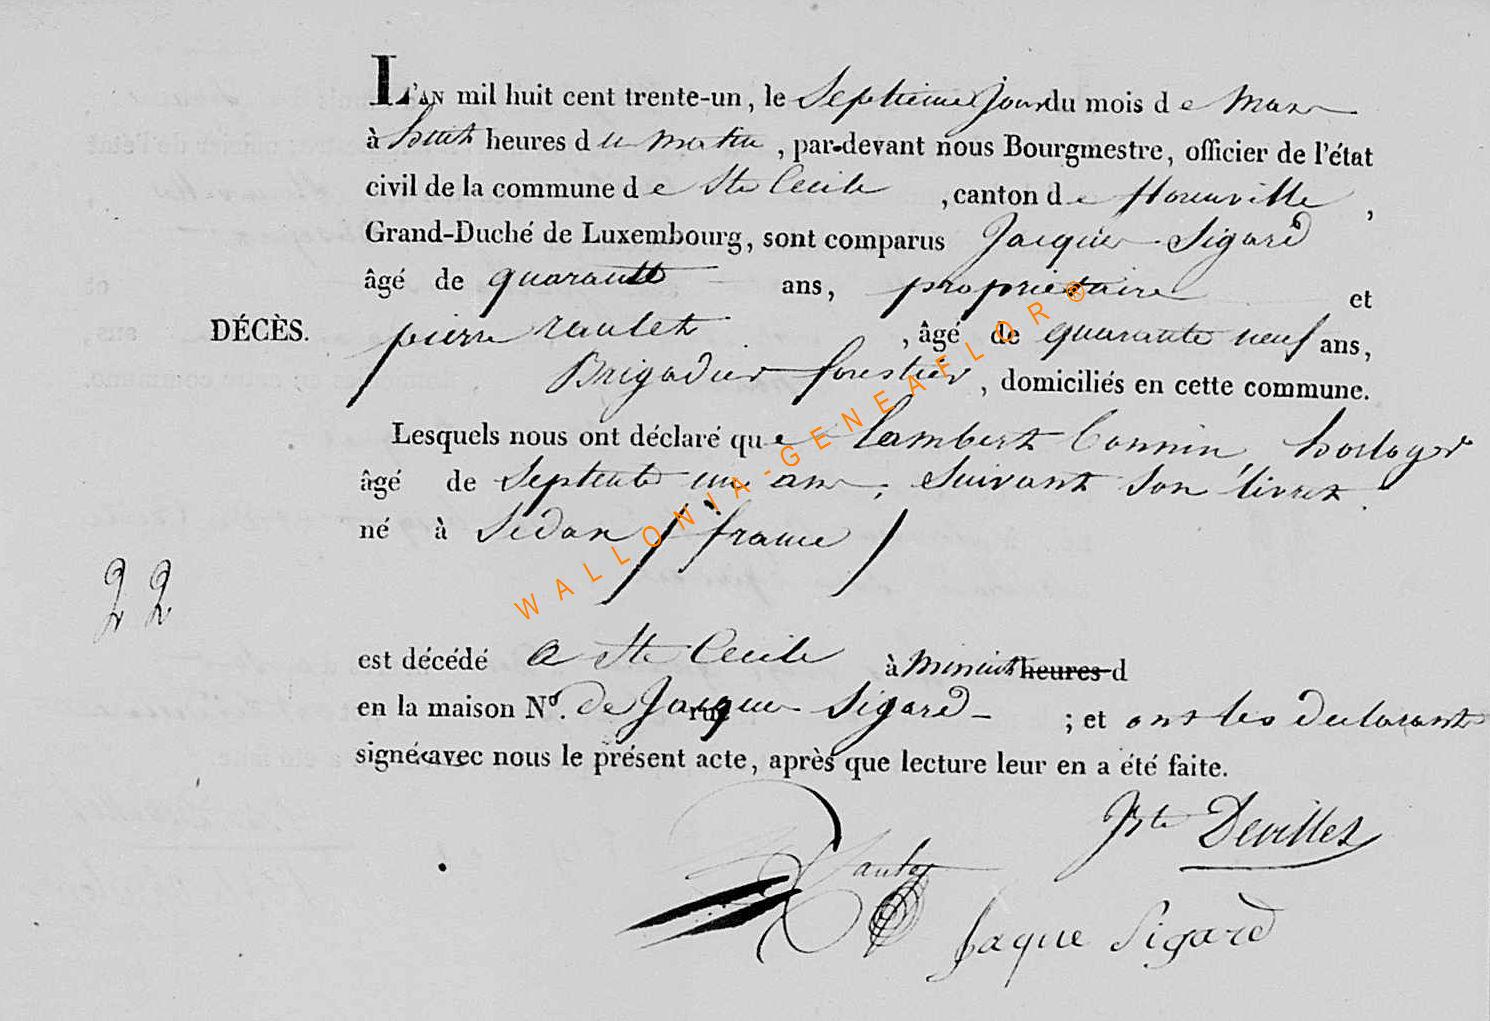 L'AN mil huit cent trente-un, le Septieme jour du mois de Mars
à huit heures du matin, par-devant nous Bourgmestre, officier de l'état
civil de la commune de Ste Cecile, canton de florenville,
Grand-Duché de Luxembourg, sont comparus Jacques Sigard
âgé de quarante ans, propriétaire et
DÉCÈS.
pierre raulet, âgé de quarante neuf ans,
Brigadier forestier, domiciliés en cette commune.
Lesquels nous ont déclaré que lambert Connin horloger
âgé de Septente un ans, suivant son livret
né à Sedan (france)
22
est décédé a Ste Cecile à minuit heures d
en la maison Nº. de Jacques rue Sigard ; et ont les declarants
signé avec nous le présent acte, après que lecture leur en a été faite.
Jbte Devillez
Jaque Sigard
WALLONIA-GENEAFLOR®